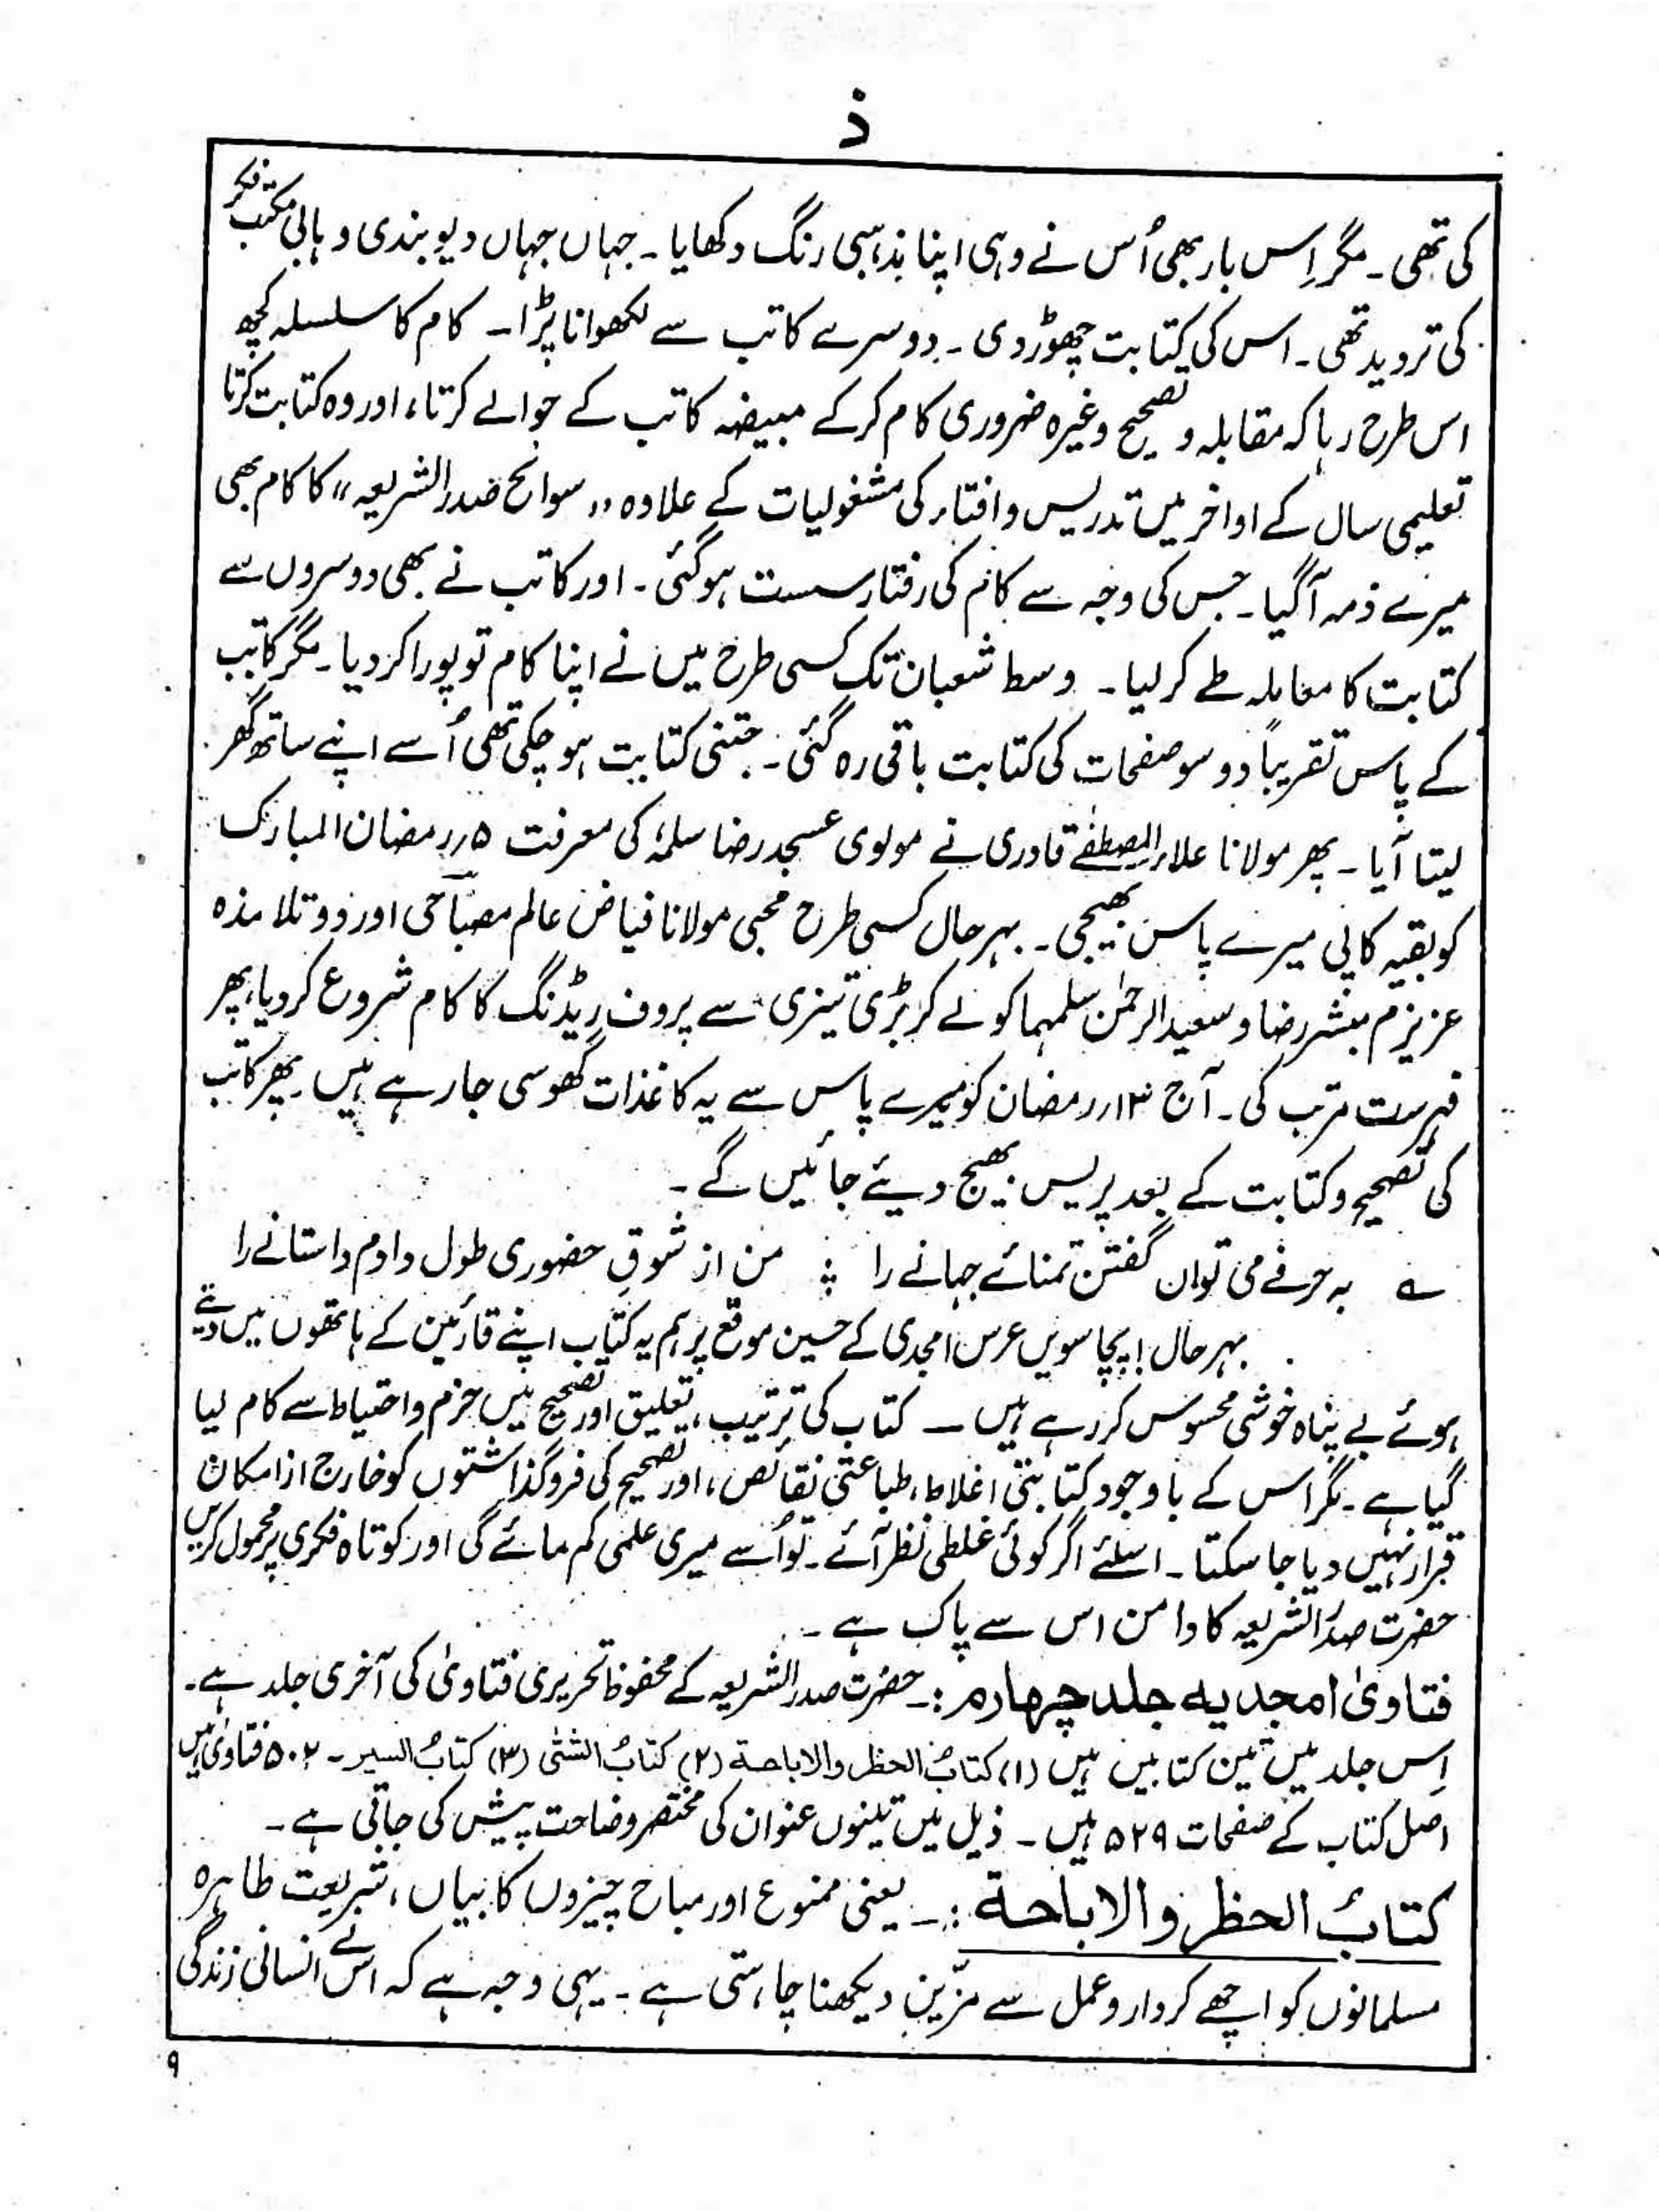 ذ
کی تھی۔ مگر اِس بار بھی اُس نے وہی اپنا مذہبی رنگ دکھایا۔ جہاں جہاں دیوبندی وہابی مکتب فکر
کی تردید تھی۔ اس کی کتابت چھوڑ دی۔ دوسرے کاتب سے لکھوانا پڑا۔ کام کا سلسلہ کچھ
اس طرح رہا کہ مقابلہ و تصحیح وغیرہ ضروری کام کرکے مبیضہ کاتب کے حوالے کرتا، اور وہ کتابت کرتا
تعلیمی سال کے اواخر میں تدریس و افتاء کی مشغولیات کے علاوہ ”سوانح صدرالشریعہ“ کا کام بھی
میرے ذمہ آگیا۔ جس کی وجہ سے کام کی رفتار سست ہوگئی۔ اور کاتب نے بھی دوسروں سے
کتابت کا معاملہ طے کرلیا۔ وسط شعبان تک کسی طرح میں نے اپنا کام تو پورا کردیا۔ مگر کاتب
کے پاس تقریباً دو سو صفحات کی کتابت باقی رہ گئی۔ جتنی کتابت ہوچکی تھی اُسے اپنے ساتھ گھر
لیتا آیا۔ پھر مولانا علاء المصطفےٰ قادری نے مولوی عسجد رضا سلمہٗ کی معرفت ۵؍ رمضان المبارک
کو بقیہ کاپی میرے پاس بھیجی۔ بہرحال کسی طرح محبی مولانا فیاض عالم مصباحی اور دو تلامذہ
عزیزم مبشر رضا و سعید الرحمٰن سلمہما کو لے کر بڑی تیزی سے پروف ریڈنگ کا کام شروع کردیا، پھر
فہرست مرتب کی۔ آج ۱۳؍ رمضان کو میرے پاس سے یہ کاغذات گھوسی جارہے ہیں۔ پھر کاتب
کی تصحیح و کتابت کے بعد پریس بھیج دیئے جائیں گے۔
؎ بہ حرفے می تواں گفتن تمنائے جہانے را ؞ من از شوقِ حضوری طول دادم داستانے را
بہرحال! پچاسویں عرس امجدی کے حسین موقع پر ہم یہ کتاب اپنے قارئین کے ہاتھوں میں دیتے
ہوئے بے پناہ خوشی محسوس کررہے ہیں ۔ کتاب کی ترتیب، تعلیق اور تصحیح میں حزم و احتیاط سے کام لیا
گیا ہے۔ مگر اس کے باوجود کتابتی اغلاط، طباعتی نقائص، اور تصحیح کی فروگذاشتوں کو خارج از امکان
قرار نہیں دیا جاسکتا۔ اسلئے اگر کوئی غلطی نظر آئے۔ تو اُسے میری علمی کم مائے گی اور کوتاہ فکری پر محمول کریں
حضرت صدرالشریعہ کا دامن اس سے پاک ہے۔
فتاویٰ امجدیہ جلد چہارم :۔ حضرت صدرالشریعہ کے محفوظ تحریری فتاویٰ کی آخری جلد ہے۔
اِس جلد میں تین کتابیں ہیں (۱) کتابُ الحظر والاباحۃ (۲) کتابُ الشتیٰ (۳) کتابُ السیر۔ ۵۰۲ فتاویٰ ہیں
اصل کتاب کے صفحات ۵۲۹ ہیں۔ ذیل میں تینوں عنوان کی مختصر وضاحت پیش کی جاتی ہے۔
کتابُ الحظر والاباحۃ :۔ یعنی ممنوع اور مباح چیزوں کا بیاں، شریعت طاہرہ
مسلمانوں کو اچھے کردار و عمل سے مزّین دیکھنا چاہتی ہے۔ یہی وجہ ہے کہ اس نے انسانی زندگی
۹